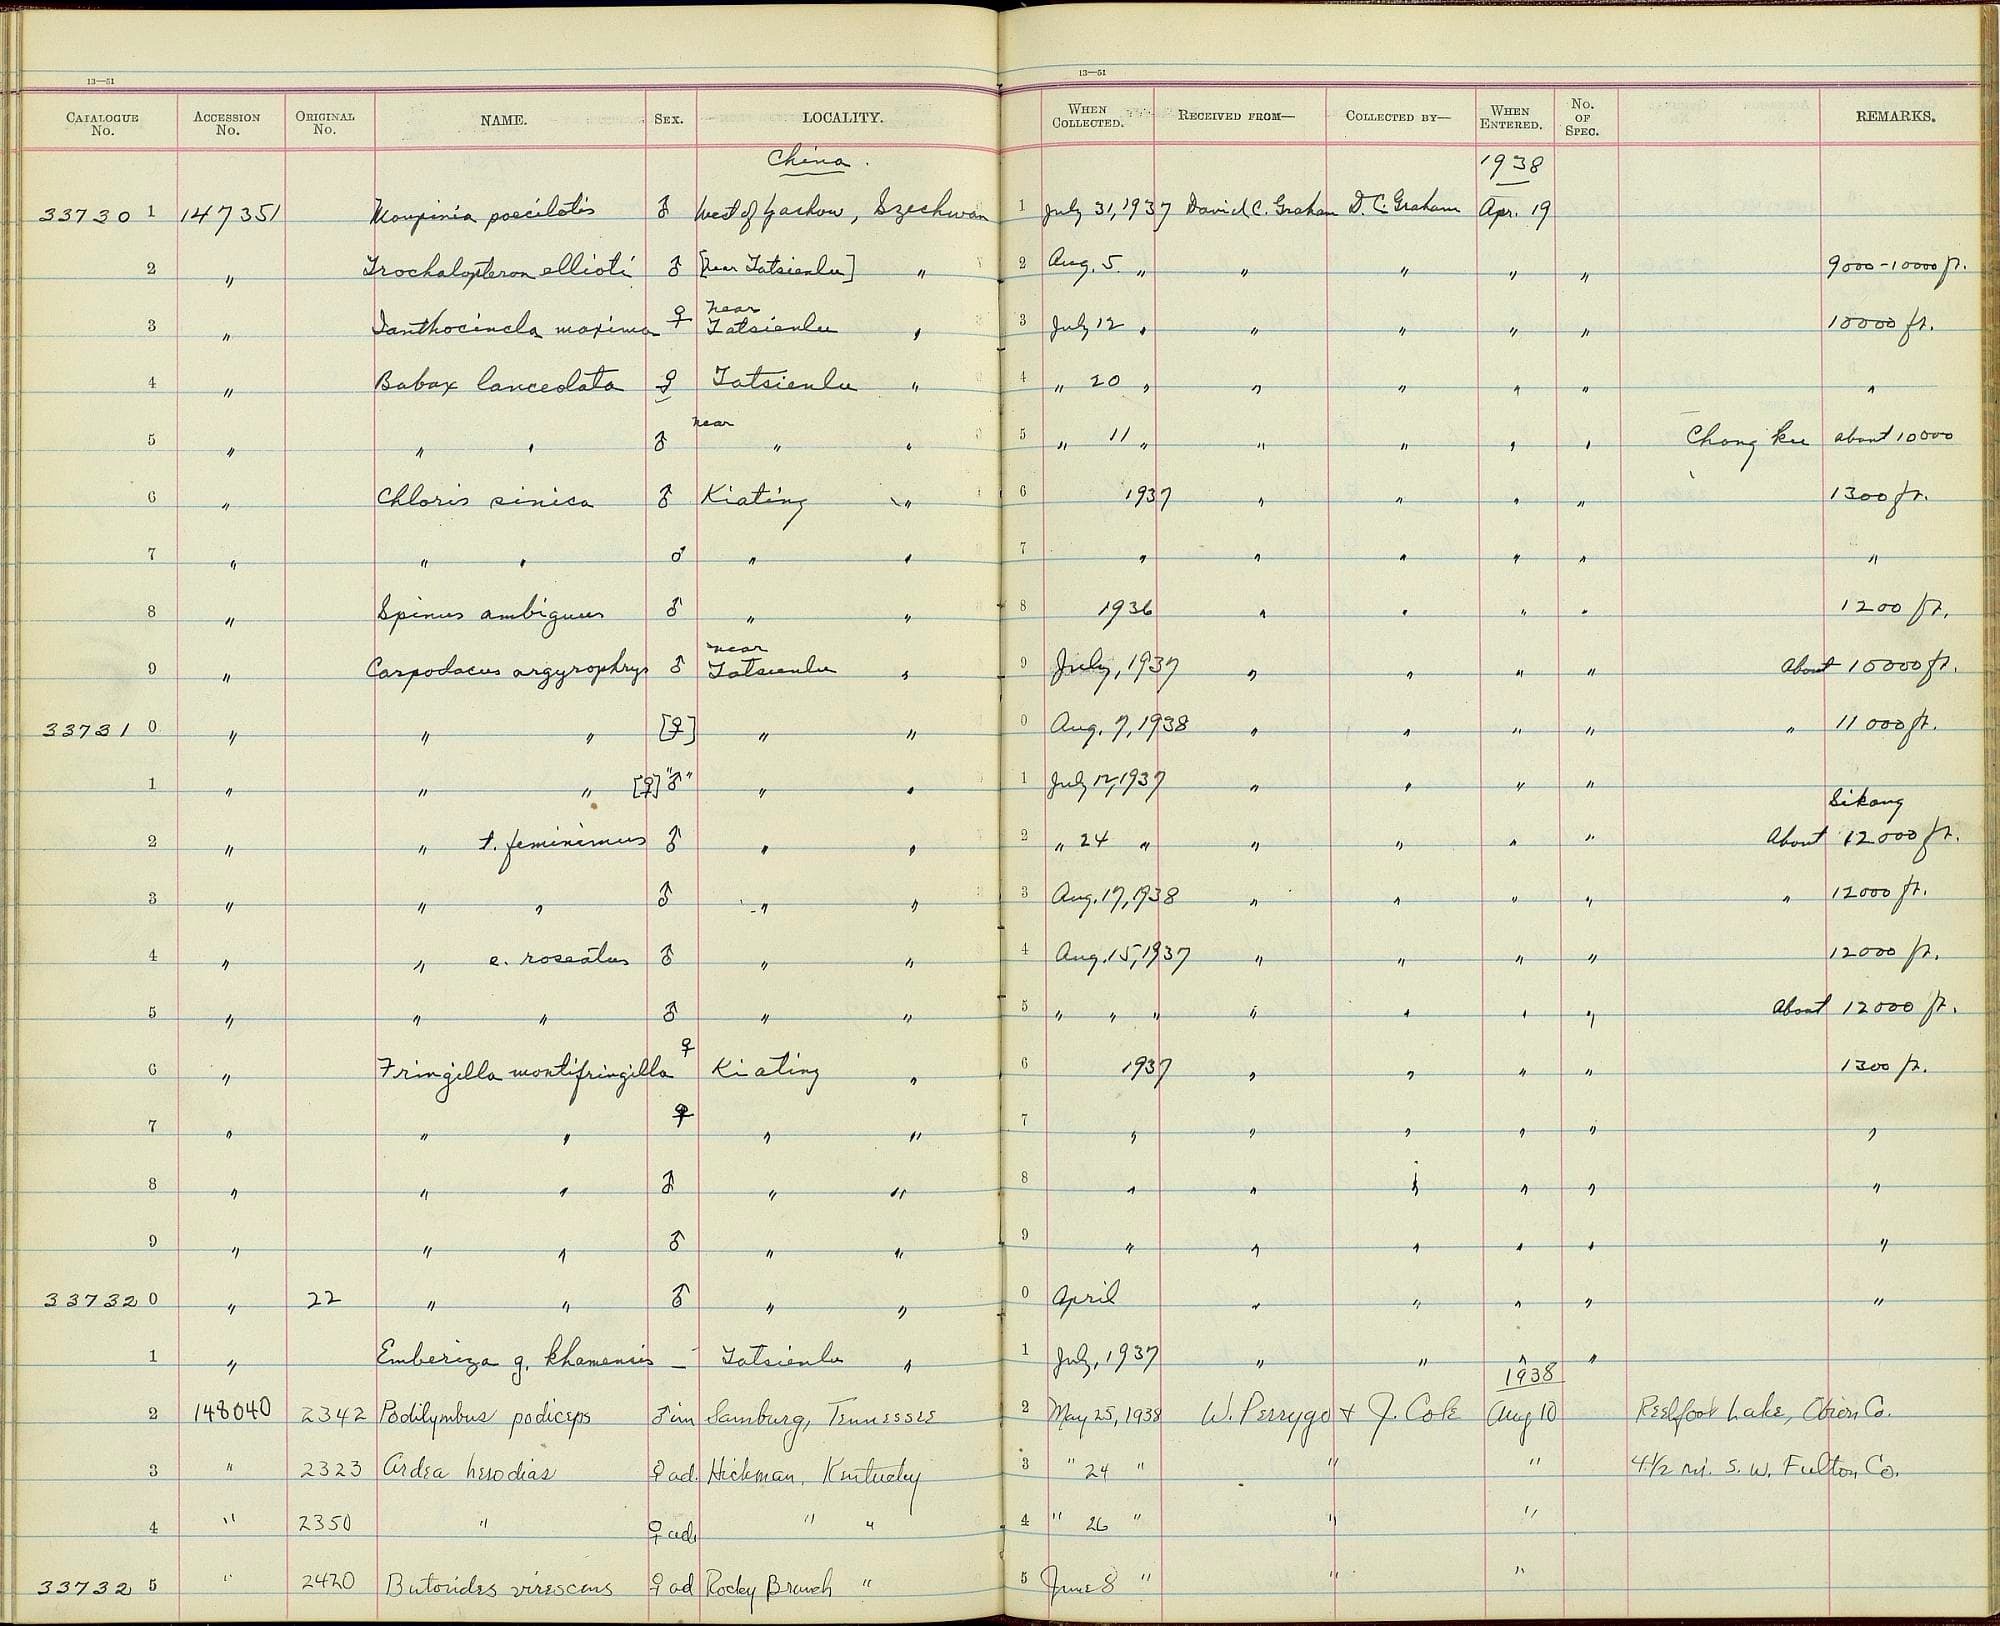 13—51 13—51
CATALOGUE No. ACCESSION No. ORIGINAL No. NAME. SEX. LOCALITY. WHEN COLLECTED. RECEIVED FROM— COLLECTED BY— WHEN ENTERED. No. OF SPEC. REMARKS.
China. 1938
33730 1 147351 Moupinia poecilotis ♂ West of Yachow, Szechwan 1 July 31, 1937 David C. Graham D. C. Graham Apr. 19
2 " Trochalopteron ellioti ♂ [near Tatsienlu] " 2 Aug. 5 " " " " " 9000-10000 ft.
3 " Ianthocincla maxima ♀ near Tatsienlu " 3 July 12 " " " " " 10000 ft.
4 " Babax lanceolata ♀ Tatsienlu " 4 " 20 " " " " " "
5 " " " ♂ near " " 5 " 11 " " " " " Chong ku about 10000
6 " Chloris sinica ♂ Kiating " 6 1937 " " " " 1300 ft.
7 " " " ♂ " " 7 " " " " " "
8 " Spinus ambiguus ♂ " " 8 1936 " " " " 1200 ft.
9 " Carpodacus argyrophrys ♂ near Tatsienlu " 9 July, 1937 " " " " About 10000 ft.
33731 0 " " " [♀] " " 0 Aug. 7, 1938 " " " " " 11000 ft.
1 " " " [♀] "♂" " " 1 July 12, 1937 " " " "
Sikang
2 " " t. feminimus ♂ " " 2 " 24 " " " " " About 12000 ft.
3 " " " ♂ " " 3 Aug. 17, 1938 " " " " " 12000 ft.
4 " " e. roseatus ♂ " " 4 Aug. 15, 1937 " " " " 12000 ft.
5 " " " ♂ " " 5 " " " " " " " About 12000 ft.
6 " Fringilla montifringilla ♀ Kiating " 6 1937 " " " " 1300 ft.
7 " " " ♀ " " 7 " " " " " "
8 " " " ♂ " " 8 " " " " " "
9 " " " ♂ " " 9 " " " " " "
33732 0 " 22 " " ♂ " " 0 April " " " " "
1 " Emberiza g. khamensis — Tatsienlu " 1 July, 1937 " " " "
1938
2 148040 2342 Podilymbus podiceps ♂ im Samburg, Tennessee 2 May 25, 1938 W. Perrygo + J. Cole Aug 10 Reelfoot Lake, Obion Co.
3 " 2323 Ardea herodias ♀ ad. Hickman, Kentucky 3 " 24 " " " 4 1/2 mi. S. W. Fulton Co.
4 " 2350 " ♀ ad. " " 4 " 26 " " "
33732 5 " 2420 Butorides virescens ♀ ad Rocky Branch " 5 June 8 " " "